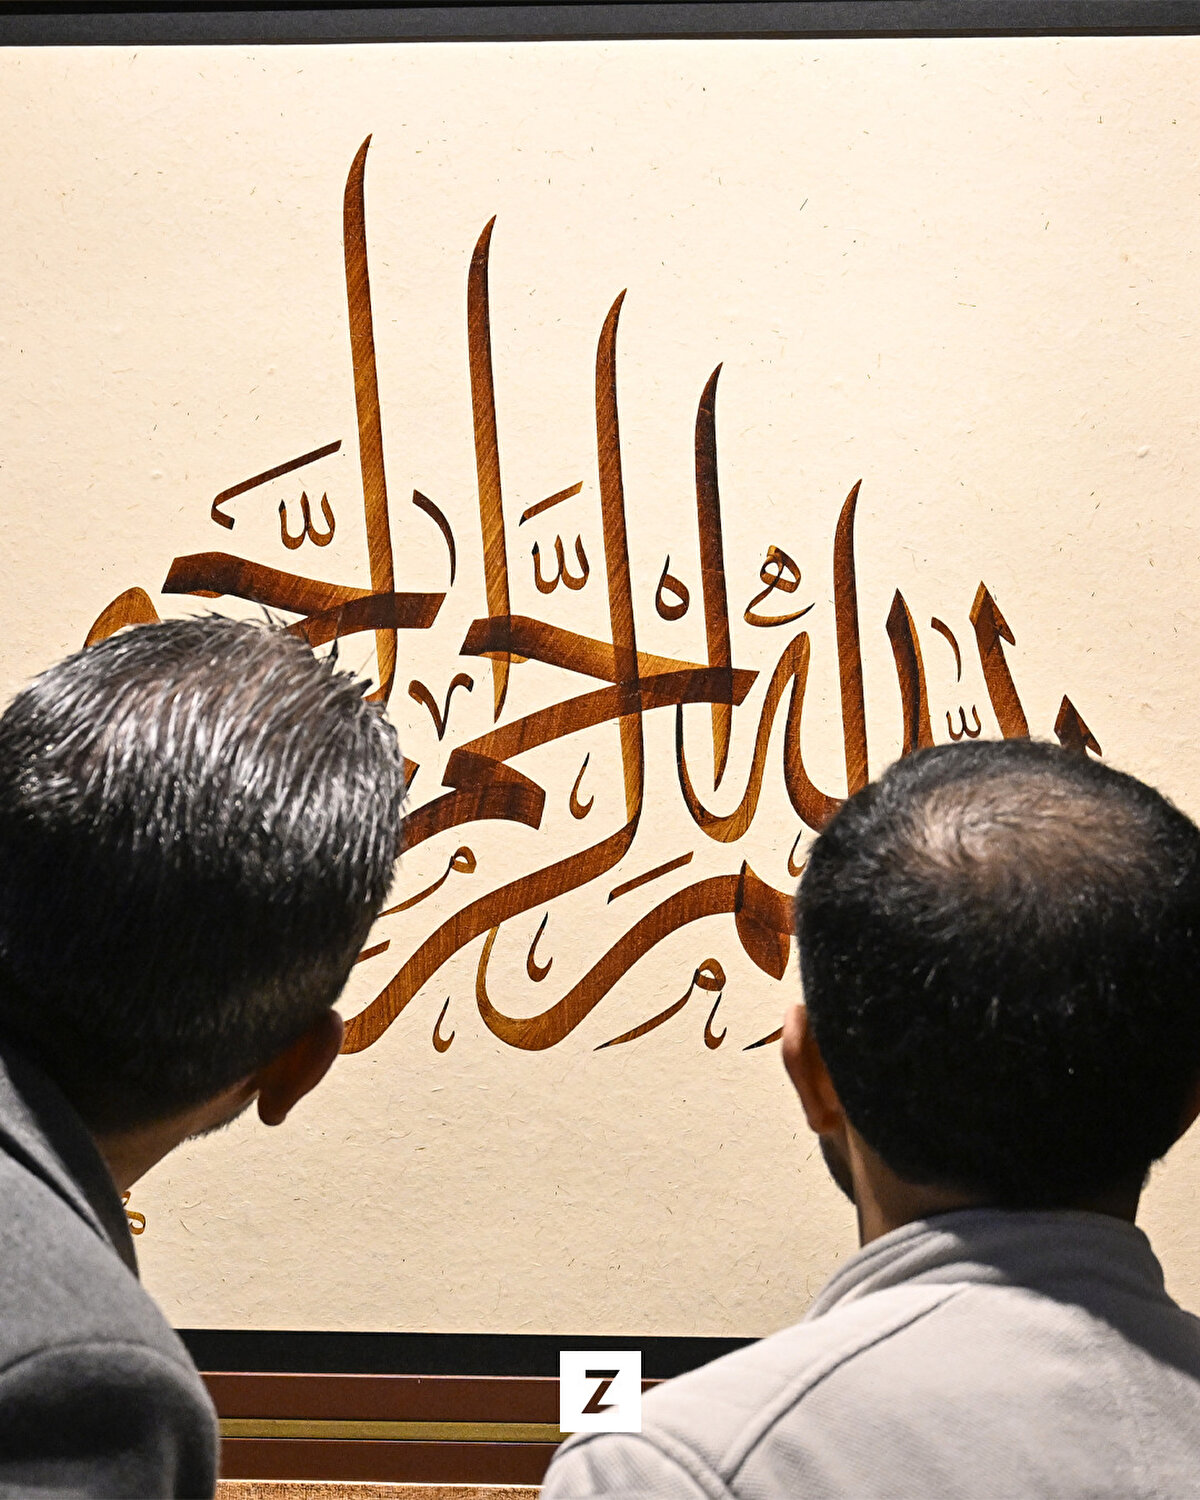 بسم الله الرحمن الرحيم
Z